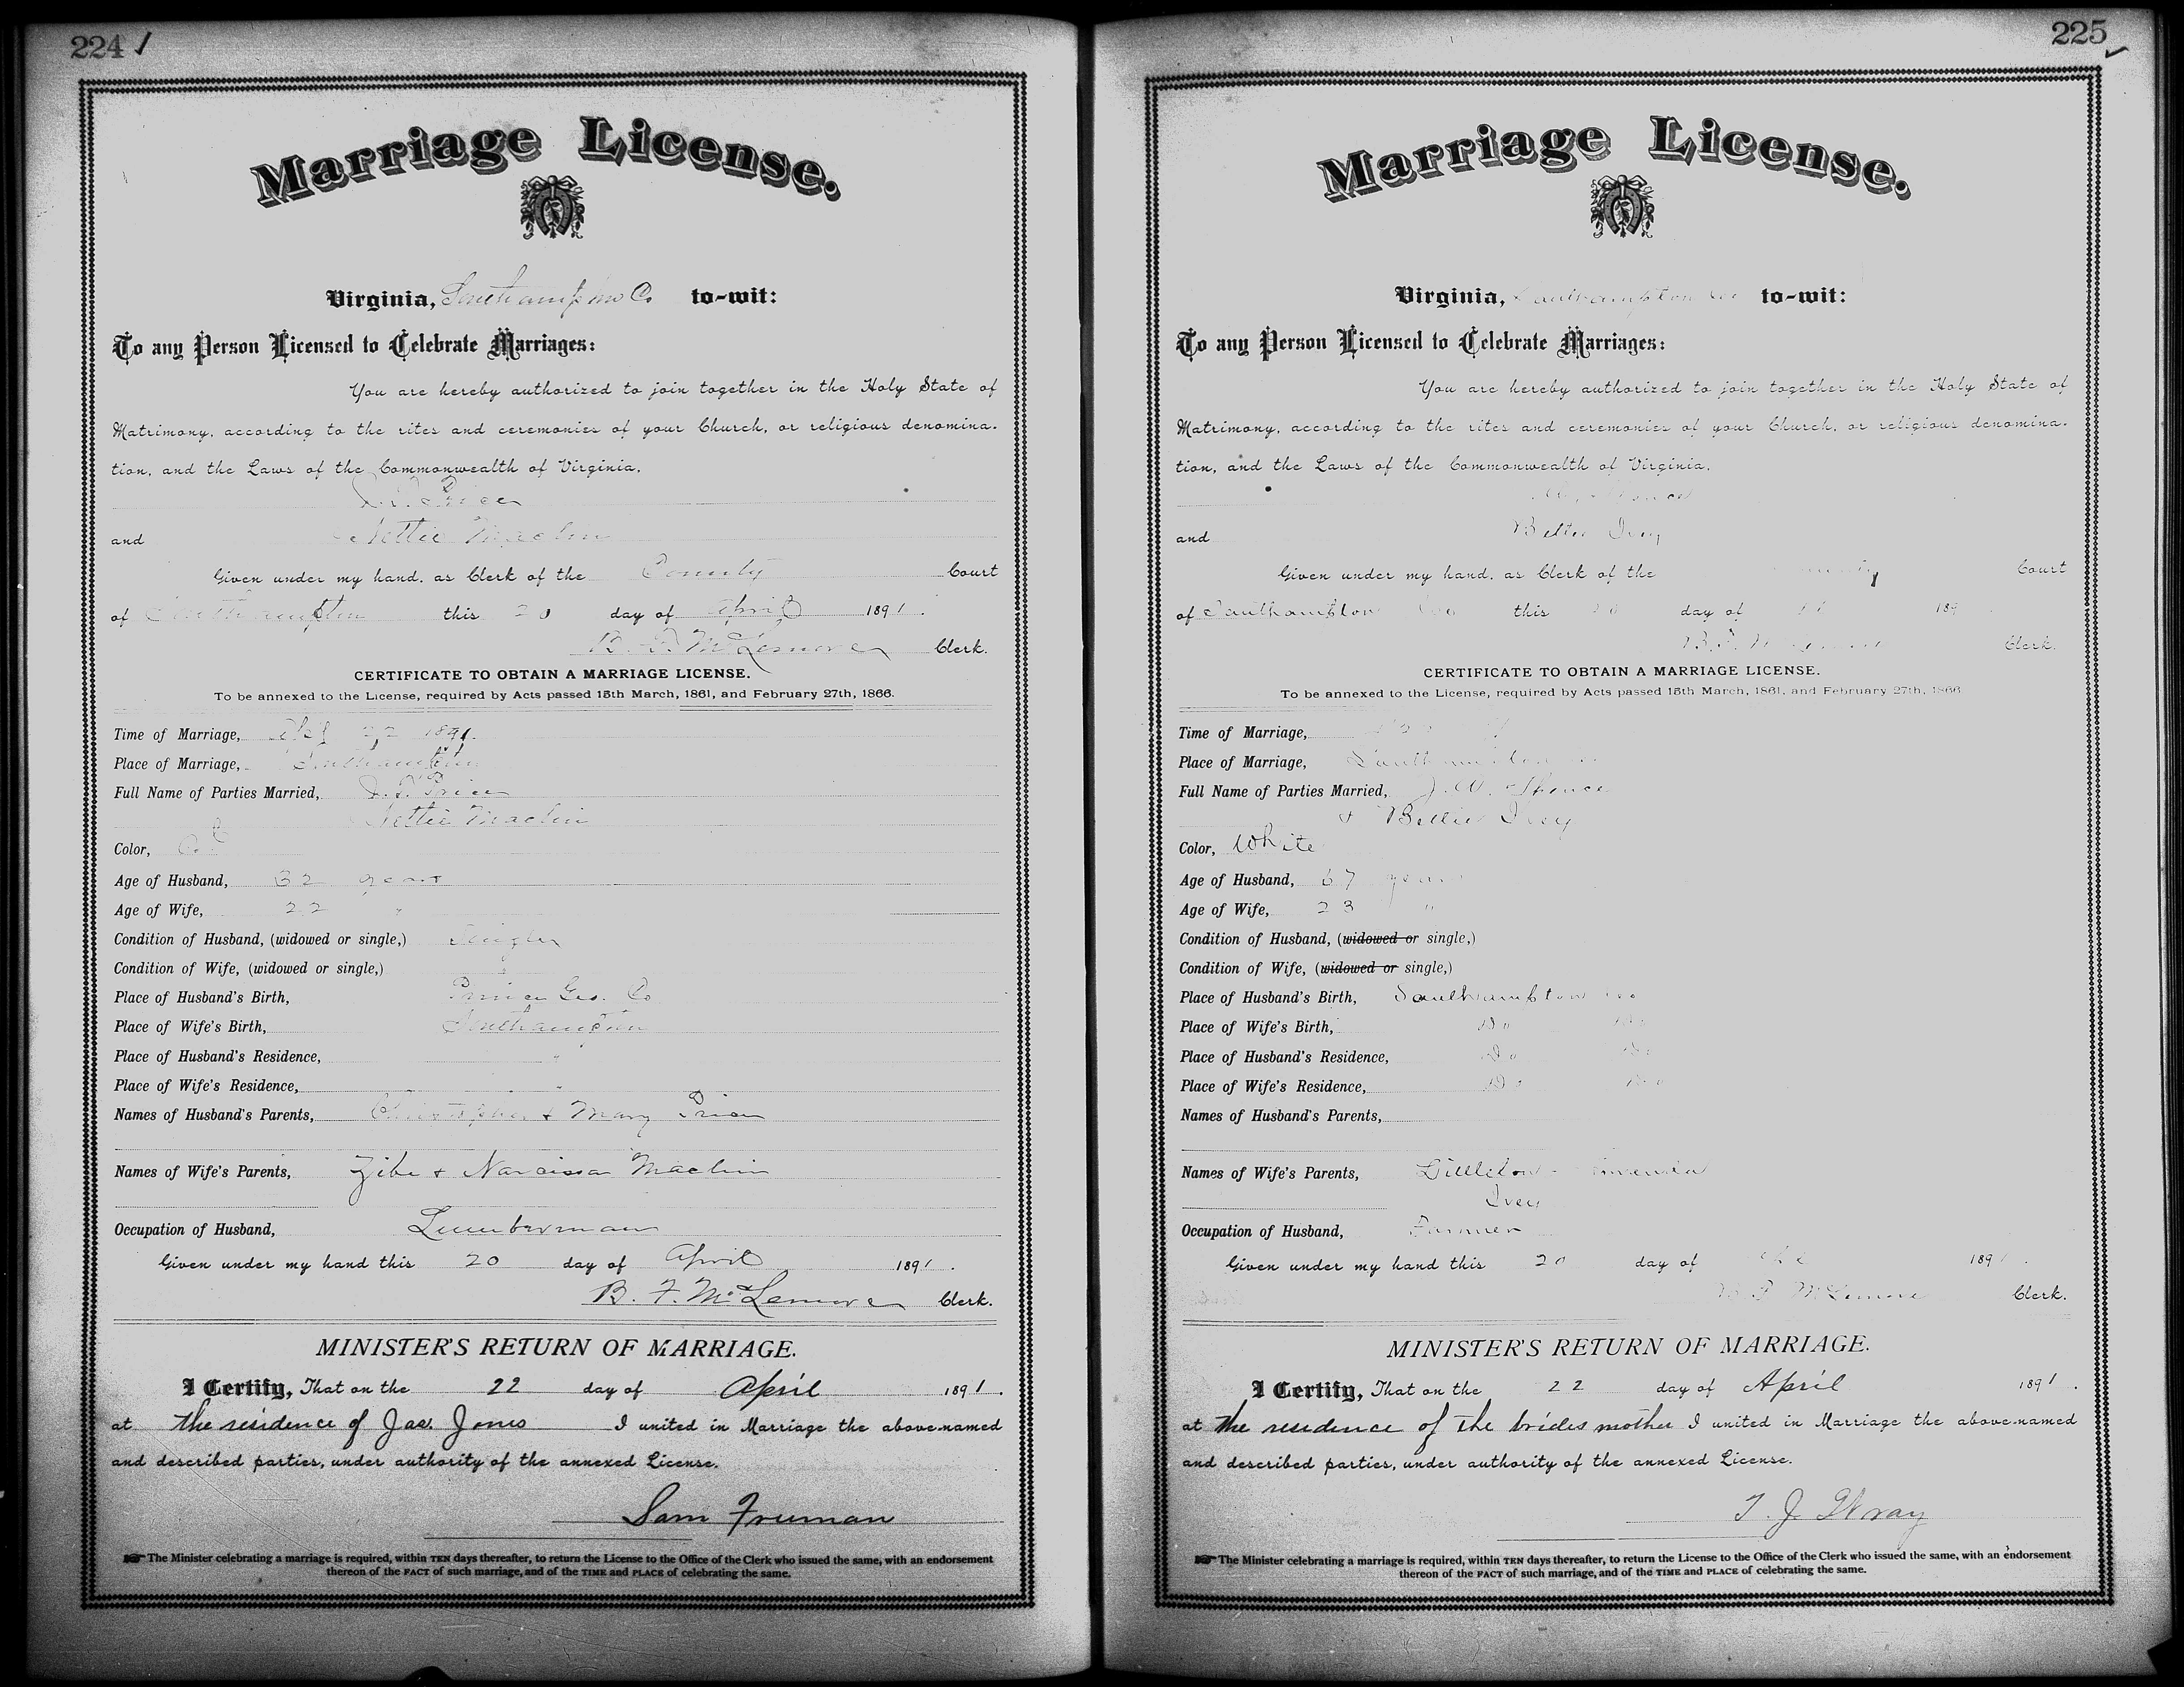 224
Marriage License.
Virginia, Southampton Co to-wit:
To any Person Licensed to Celebrate Marriages:
You are hereby authorized to join together in the Holy State of
Matrimony, according to the rites and ceremonies of your Church, or religious denomina-
tion, and the Laws of the Commonwealth of Virginia,
Price
and Nettie Maclin
Given under my hand, as Clerk of the County Court
of Southampton this 20 day of April 1891.
B. F. McLemore Clerk.
CERTIFICATE TO OBTAIN A MARRIAGE LICENSE.
To be annexed to the License, required by Acts passed 15th March, 1861, and February 27th, 1866.
Time of Marriage, Apl 22 1891.
Place of Marriage, Southampton
Full Name of Parties Married, Price
Nettie Maclin
Color, Col
Age of Husband, 32 years
Age of Wife, 22 "
Condition of Husband, (widowed or single,) Single
Condition of Wife, (widowed or single,)
Place of Husband's Birth, Prince Geo. Co
Place of Wife's Birth, Southampton
Place of Husband's Residence, "
Place of Wife's Residence, "
Names of Husband's Parents, Christopher & Mary Price
Names of Wife's Parents, Zibe & Narcissa Maclin
Occupation of Husband, Lumberman
Given under my hand this 20 day of April 1891.
B. F. McLemore Clerk.
MINISTER'S RETURN OF MARRIAGE.
I Certify, That on the 22 day of April 1891.
at the residence of Jas. Jones I united in Marriage the above-named
and described parties, under authority of the annexed License.
Sam Fruman
The Minister celebrating a marriage is required, within TEN days thereafter, to return the License to the Office of the Clerk who issued the same, with an endorsement
thereon of the FACT of such marriage, and of the TIME and PLACE of celebrating the same.
225
Marriage License.
Virginia, Southampton Co to-wit:
To any Person Licensed to Celebrate Marriages:
You are hereby authorized to join together in the Holy State of
Matrimony, according to the rites and ceremonies of your Church, or religious denomina-
tion, and the Laws of the Commonwealth of Virginia,
and Bettie Ivey
Given under my hand, as Clerk of the County Court
of Southampton Co this 20 day of 189
B. F. McLemore Clerk.
CERTIFICATE TO OBTAIN A MARRIAGE LICENSE.
To be annexed to the License, required by Acts passed 15th March, 1861, and February 27th, 1866
Time of Marriage,
Place of Marriage, Southampton Co
Full Name of Parties Married, J. W. Spence
& Bettie Ivey
Color, White
Age of Husband, 67 years
Age of Wife, 23 "
Condition of Husband, (widowed or single,)
Condition of Wife, (widowed or single,)
Place of Husband's Birth, Southampton Co
Place of Wife's Birth, Do Do
Place of Husband's Residence, Do Do
Place of Wife's Residence, Do Do
Names of Husband's Parents,
Names of Wife's Parents, Littleton
Ivey
Occupation of Husband, Farmer
Given under my hand this 20 day of 1891.
B. F. McLemore Clerk.
MINISTER'S RETURN OF MARRIAGE.
I Certify, That on the 22 day of April 1891.
at the residence of the brides mother I united in Marriage the above-named
and described parties, under authority of the annexed License.
T. J. Wray
The Minister celebrating a marriage is required, within TEN days thereafter, to return the License to the Office of the Clerk who issued the same, with an endorsement
thereon of the FACT of such marriage, and of the TIME and PLACE of celebrating the same.